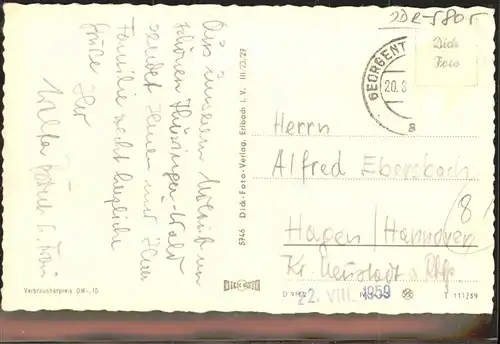 Aus unserem Urlaub im
schönen Thüringer-Wald
sendet Ihnen und Ihrer
Familie recht herzliche
Grüße Ihr
Walter
u. Frau
Verbraucherpreis DM -,10
5946 Dick-Foto-Verlag, Erlbach i. V. III 23 27
DICK FOTO
GEORGENT
20.8
a
Dick
Foto
Herrn
Alfred Ebersbach
Hagen/Hannover
Kr. Neustadt a. Rbge.
8
22. VIII. 1959
T 111/59